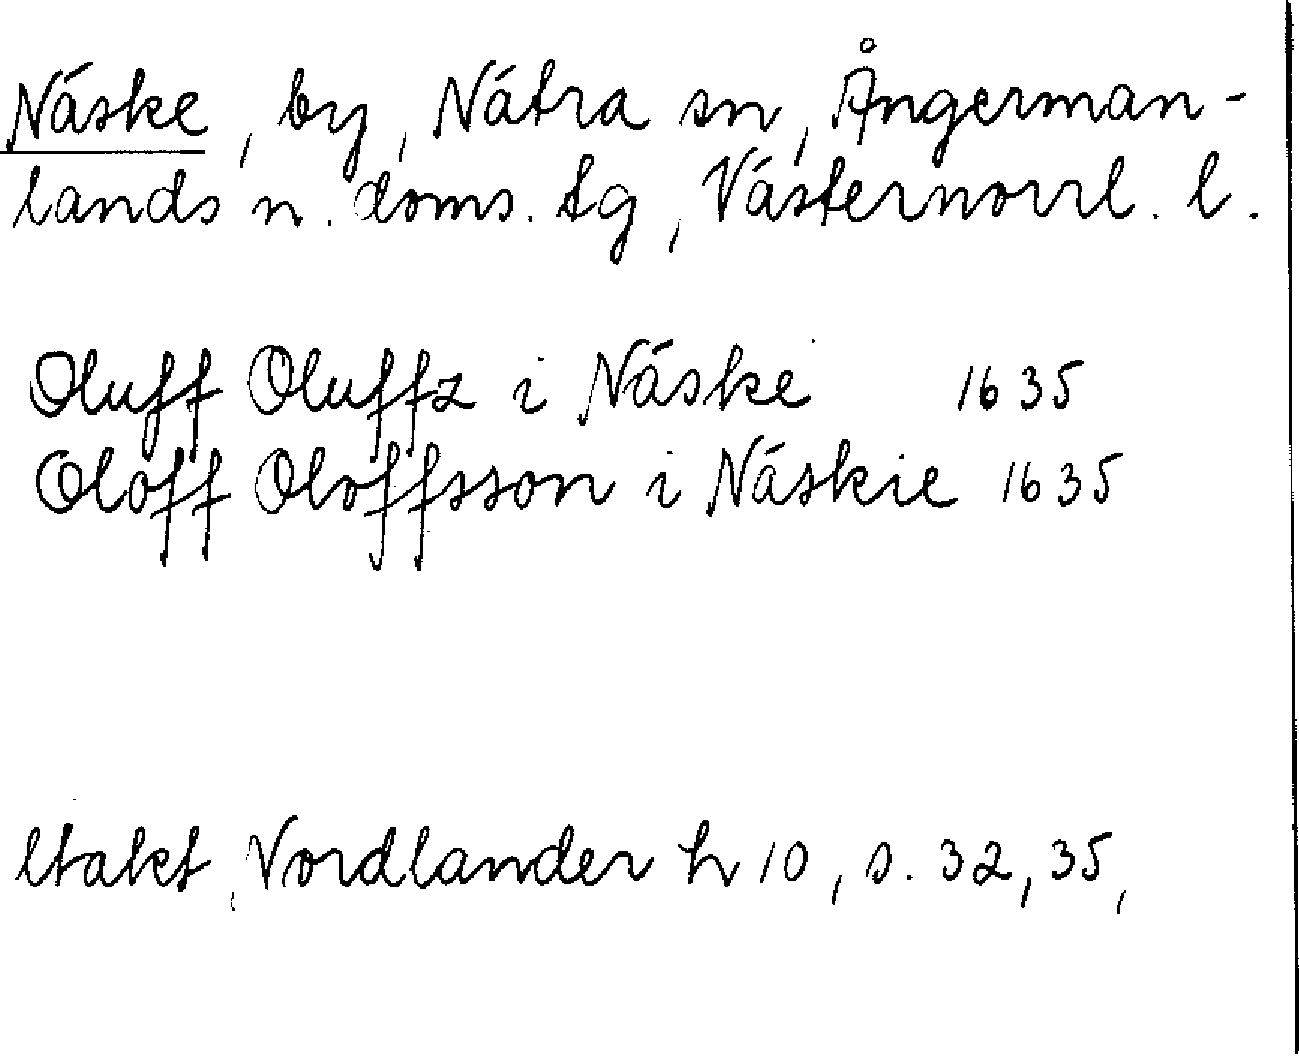 Näske, by, Nätra sn, Ångerman-
lands n. doms. tg, Västernorrl. l.
Oluff Oluffz i Näske 1635
Oloff Oloffsson i Näskie 1635
Utakt, Nordlander h 10, s. 32, 35,